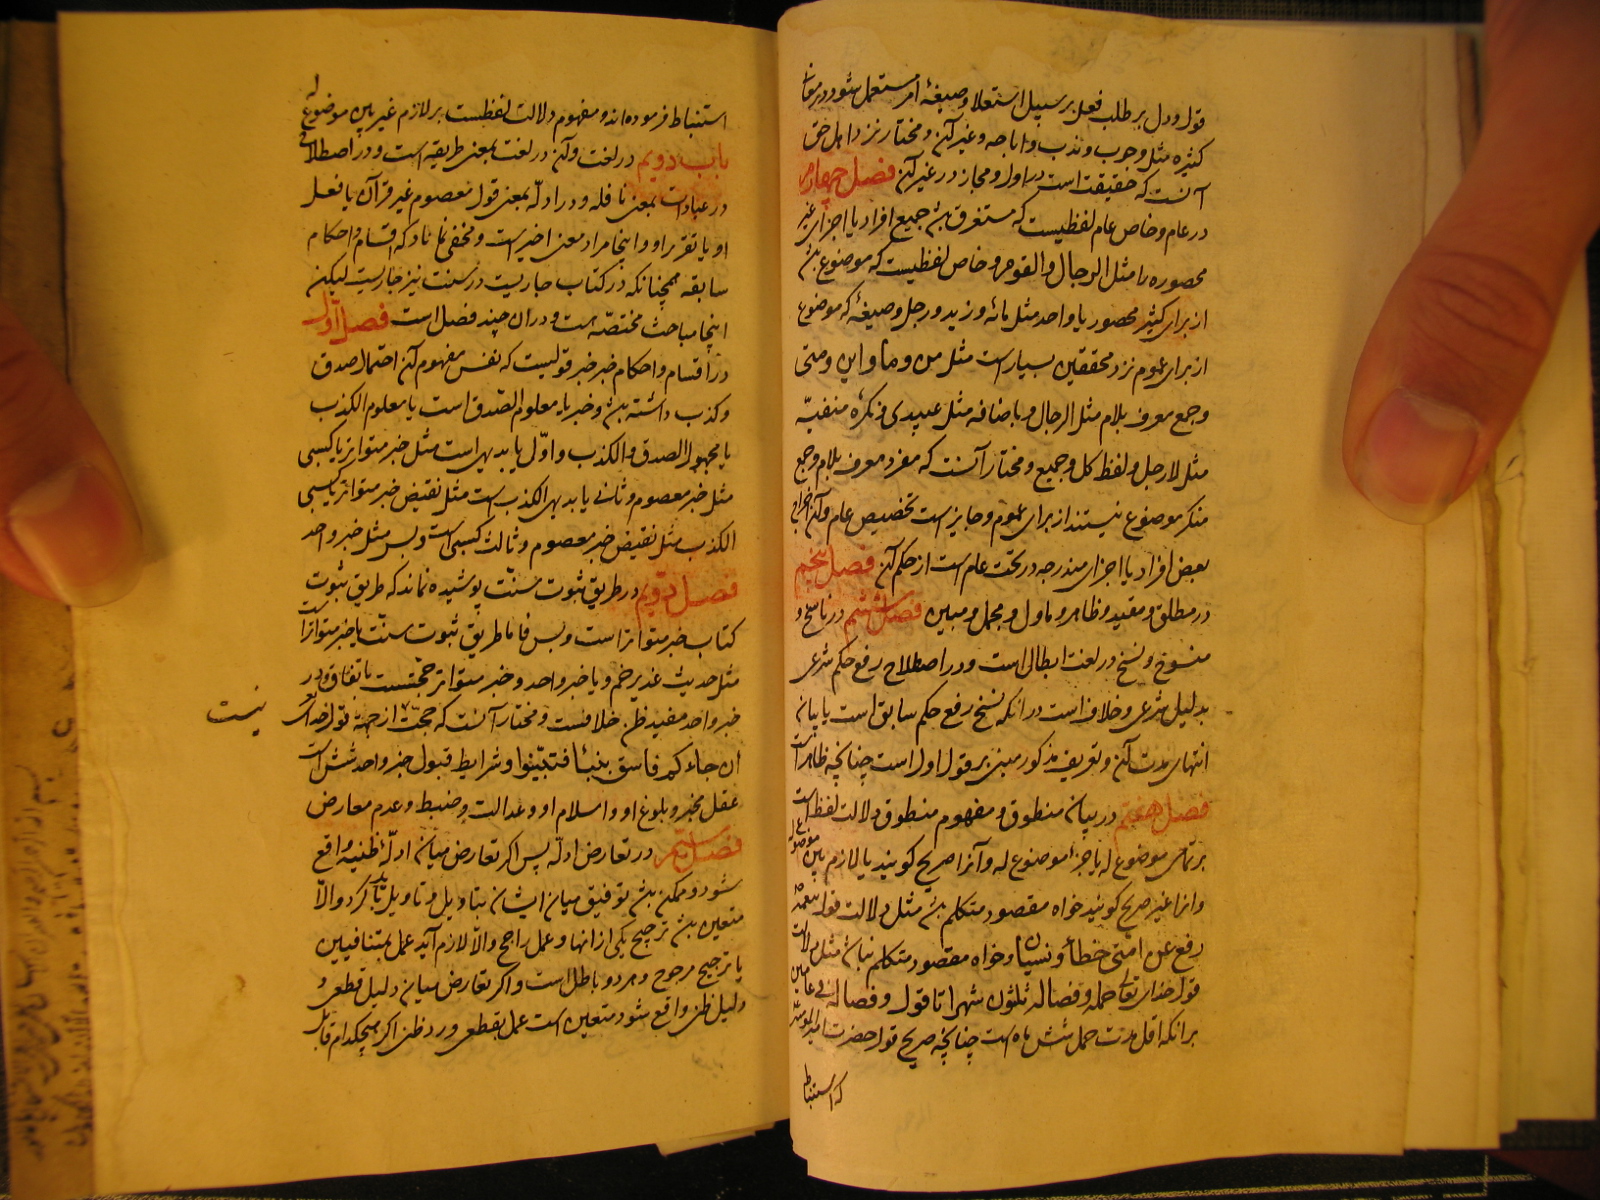 قول و دل بر طلب فعل بر سبیل استعلا و صیغهٔ امر مستعمل شود در معانی
کثیره مثل وجوب و ندب و اباحه و غیر آن و مختار نزد اهل حق
آنست که حقیقت است در اول و مجاز در غیر آن فصل چهارم
در عام و خاص عام لفظیست که مستغرق باشد جمیع افراد یا اجزای غیر
محصوره را مثل الرجال و القوم و خاص لفظیست که موضوع باشد
از برای کثیر محصور یا واحد مثل مائه و زید و رجل و صیغهٔ که موضوع
از برای عموم نزد محققین بسیار است مثل من و ما و این و متی
و جمع معرف بلام مثل الرجال و باضافه مثل عبیدی و نکره منفیّه
مثل لا رجل و لفظ کل و جمیع و مختار آنست که مفرد معرف بلام و جمع
منکر موضوع نیستند از برای عموم و جایز است تخصیص عام و آن اخراج
بعض افراد یا اجزای مندرجه در تحت عام است از حکم آن فصل پنجم
در مطلق و مقید و ظاهر و ماول و مجمل و مبین فصل ششم در ناسخ و
منسوخ و نسخ در لغت ابطال است و در اصطلاح رفع حکم شرعی
بدلیل شرعی و خلاف است در انکه نسخ رفع حکم سابق است یا بیان
انتهای مدت آن و تعریف مذکور مبنی بر قول اول است چنانچه ظاهر است
فصل هفتم در بیان منطوق و مفهوم منطوق دلالت لفظ است
بر تمامی موضوع له یا جزء موضوع له و آنرا صریح گویند یا لازم بین موضوع له
و انرا غیر صریح گویند خواه مقصود متکلم باشد مثل دلالت قول پیغمبر
رفع عن امتی خطأ و نسیان و خواه مقصود متکلم نباشد مثل دلالت
قول خدای تعالی حمله و فصاله ثلثون شهرا تا قول و فصاله فی عامین
برانکه اقل مدت حمل شش ماه است چنانچه صریح قول حضرت امیر المؤمنین
که استنباط
استنباط فرموده اند و مفهوم دلالت لفظست بر لازم غیر بین موضوع له
باب دویم در لغت و آن در لغت بمعنی طریقه است و در اصطلاح
در عبادات بمعنی نافله و در ادلّه بمعنی قول معصوم غیر قرآن یا فعل
او یا تقریر او و اینجا مراد معنی اخیر است و مخفی نماناد که اقسام و احکام
سابقه همچنانکه در کتاب جاریست در سنت نیز جاریست لیکن
اینجا مباحث مختصّه است و دران چند فصل است فصل اوّل
در اقسام و احکام خبر خبر قولیست که نفس مفهوم آن احتمال صدق
و کذب داشته باشد و خبر یا معلوم الصّدق است یا معلوم الکذب
یا مجهول الصدق و الکذب و اوّل یا بدیهی است مثل خبر متواتر یا کسبی
مثل خبر معصوم و ثانی یا بدیهی الکذب است مثل نقیض خبر متواتر یا کسبی
الکذب مثل نقیض خبر معصوم و ثالث کسبی است و بس مثل خبر واحد
فصل دویم در طریق ثبوت سنّت پوشیده نماند که طریق ثبوت
کتاب خبر متواتر است و بس فاما طریق ثبوت سنّت یا خبر متواتر است
مثل حدیث غدیر خم و یا خبر واحد و خبر متواتر حجّتست باتفاق و در
خبر واحد مفید ظن خلافست و مختار آنست که حجت نیست از جهة قول خدای تعالی
ان جاءکم فاسق بنبأ فتبیّنوا و شرایط قبول خبر واحد شش است
عقل مخبر و بلوغ او و اسلام او و عدالت و ضبط و عدم معارض
فصل سیّم در تعارض ادلّه پس اکر تعارض میان ادلّهٔ ظنیّه واقع
شود و ممکن باشد توفیق میان ایشان بتاویل تاویل باید کرد و الّا
متعین باشد ترجیح یکی از انها و عمل راجح و الّا لازم آید عمل بمتنافیین
یا ترجیح مرجوح و هر دو باطل است و اکر تعارض میان دلیل قطعی و
دلیل ظنی واقع شود متعین است عمل بقطعی و رد ظنی اکر هیچکدام قابل